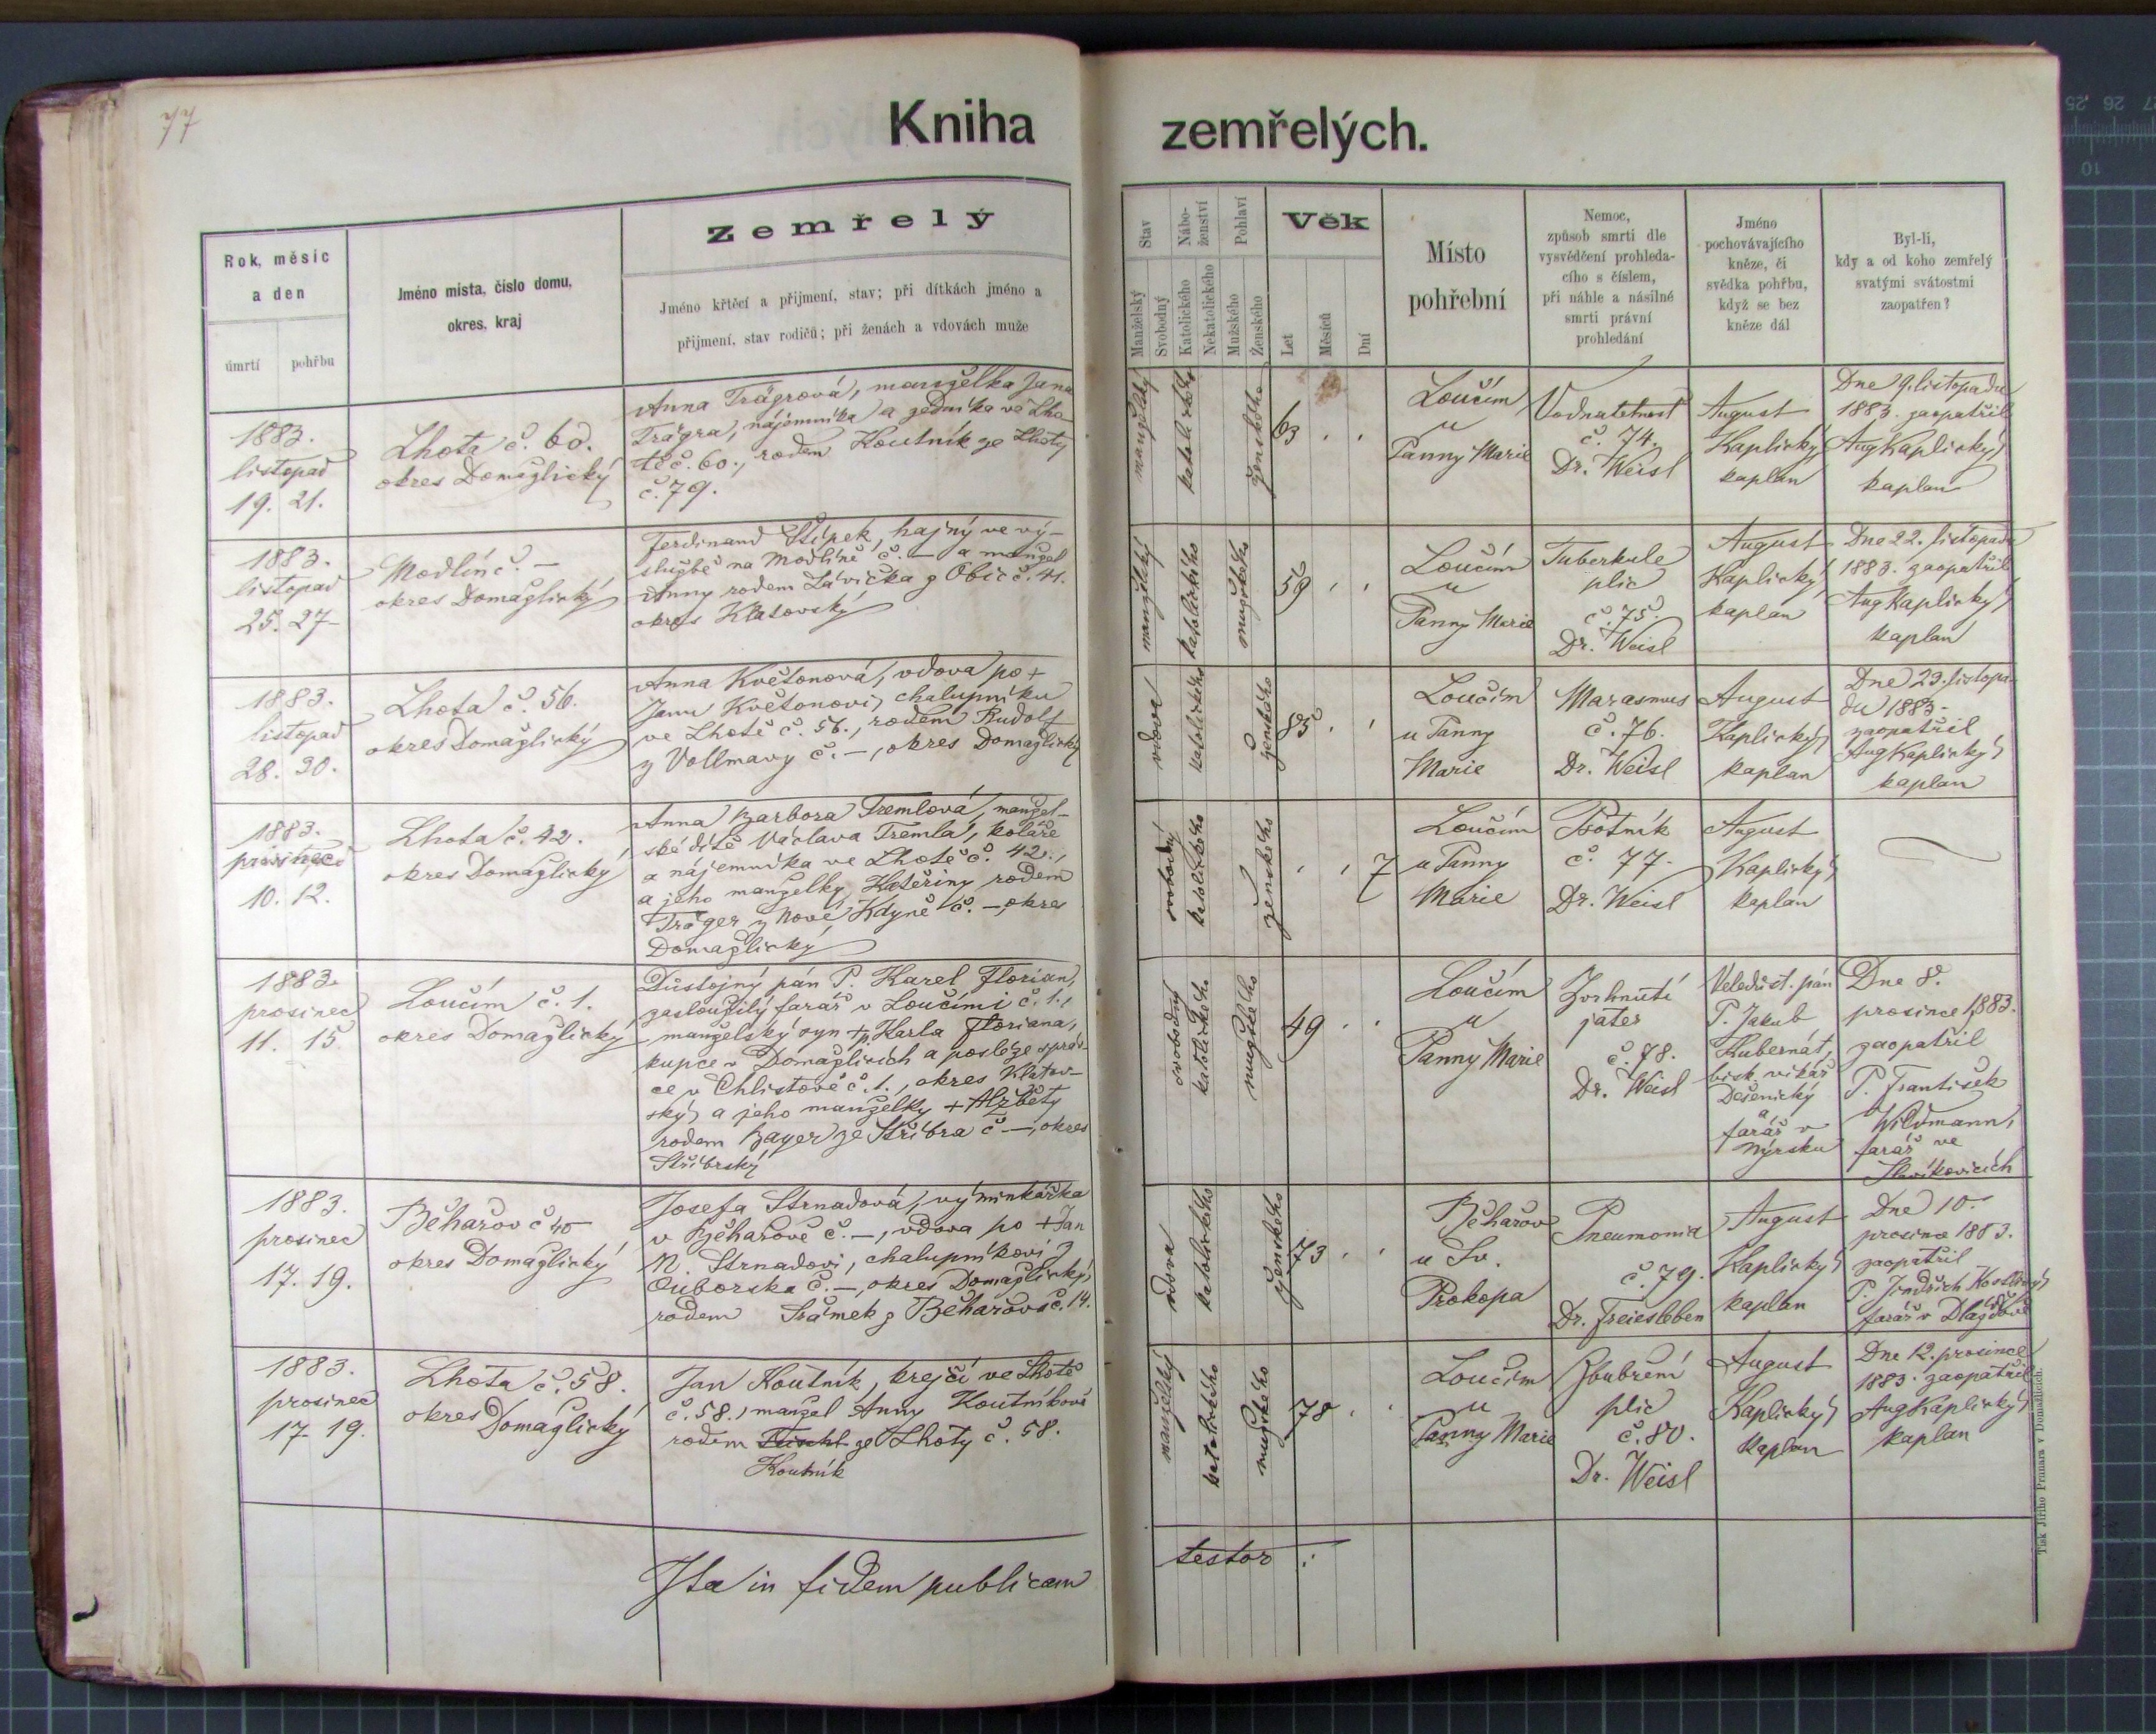 77
Kniha zemřelých.
Rok, měsíc
a den
úmrtí pohřbu
Jméno místa, číslo domu,
okres, kraj
Zemřelý
Jméno křtěcí a přijmení, stav; při dítkách jméno a
přijmení, stav rodičů; při ženách a vdovách muže
Stav
Manželský
Svobodný
Nábo-
ženství
Katolického
Nekatolického
Pohlaví
Mužského
Ženského
Věk
Let
Měsíců
Dní
Místo
pohřební
Nemoc,
způsob smrti dle
vysvědčení prohleda-
cího s číslem,
při náhle a násilné
smrti právní
prohledání
Jméno
pochovávajícího
kněze, či
svědka pohřbu,
když se bez
kněze dál
Byl-li,
kdy a od koho zemřelý
svatými svátostmi
zaopatřen?
1883.
listopad
19. 21.
Lhota č. 60.
okres Domažlický
Anna Trägrová, manželka Jana
Trägra, nájemníka a zedníka ve Lho
tě č. 60., rodem Koutník ze Lhoty
č. 79.
manželský
katolického
ženského
63
Loučim
u
Panny Marie
Vodnatelnost
č. 74.
Dr. Weisl
August
Kaplický
kaplan
Dne 9. listopadu
1883. zaopatřil
Aug Kaplický
kaplan
1883.
listopad
25. 27
Modlín č. –
okres Domažlický
Ferdinand Štípek, hajný ve vý-
službě na Modlíně č. – a manžel
Anny rodem Lávička z Obic č. 41.
okres Klatovský
manželský
katolického
mužského
59
Loučim
u
Panny Marie
Tuberkule
plic
č. 75.
Dr. Weisl
August
Kaplický
kaplan
Dne 22. listopadu
1883. zaopatřil
Aug Kaplický
kaplan
1883.
listopad
28. 30.
Lhota č. 56.
okres Domažlický
Anna Květonová, vdova po +
Janu Květonovi, chalupníku
ve Lhotě č. 56., rodem Rudolf
z Vollmavy č. –, okres Domažlický
vdova
katolického
ženského
85
Loučim
u Panny
Marie
Marasmus
č. 76.
Dr. Weisl
August
Kaplický
kaplan
Dne 23. listopa-
du 1883.
zaopatřil
Aug Kaplický
kaplan
1883.
prosinec
10. 12.
Lhota č. 42.
okres Domažlický
Anna Barbora Tremlová, manžel-
ské dítě Václava Tremla, koláře
a nájemníka ve Lhotě č. 42.,
a jeho manželky Kateřiny rodem
Träger z Nové Kdyně č. –, okres
Domažlický
svobodný
katolického
ženského
7
Loučim
u Panny
Marie
Psotník
č. 77.
Dr. Weisl
August
Kaplický
kaplan
1883.
prosinec
11. 15
Loučim č. 1.
okres Domažlický
Důstojný pán P. Karel Florian,
zasloužilý farář v Loučimi č. 1.,
manželský syn + p. Karla Floriana,
kupce v Domažlicích a posléze správ-
ce v Chlistově č. 1., okres Klatov-
ský, a jeho manželky + Alžběty
rodem Bayer ze Stříbra č. –, okres
Stříbrský
svobodný
katolického
mužského
49
Loučim
u
Panny Marie
Zvrhnutí
jater
č. 78.
Dr. Weisl
Veledůst. pán
P. Jakub
Kubernát,
bisk. vikář
Dešenický
a
farář v
Nýrsku
Dne 8.
prosince 1883.
zaopatřil
P. František
Wildmann,
farář ve
Slavíkovicích
1883.
prosinec
17. 19.
Běhařov č 40
okres Domažlický
Josefa Strnadová, výminkářka
v Běhařově č. –, vdova po + Jan
N. Strnadovi, chalupníkovi z
Ouborska č. –, okres Domažlický,
rodem Šrámek z Běhařova č. 14.
vdova
katolického
ženského
73
Běhařov
u Sv.
Prokopa
Pneumonia
č. 79.
Dr. Freiesleben
August
Kaplický
kaplan
Dne 10.
prosince 1883.
zaopatřil
P. Jindřich
farář v Dlažově
1883.
prosinec
17 19.
Lhota č. 58.
okres Domažlický
Jan Koutník, krejčí ve Lhotě
č. 58., manžel Anny Koutníkové
rodem ze Lhoty č. 58.
Koutník
manželský
katolického
mužského
78
Loučim
u
Panny Marie
Zbubření
plic
č. 80.
Dr. Weisl
August
Kaplický
kaplan
Dne 12. prosince
1883. zaopatřil
Aug Kaplický
kaplan
Ita in fidem publicam testor:
Tisk Jiřího Prunara v Domažlicích.